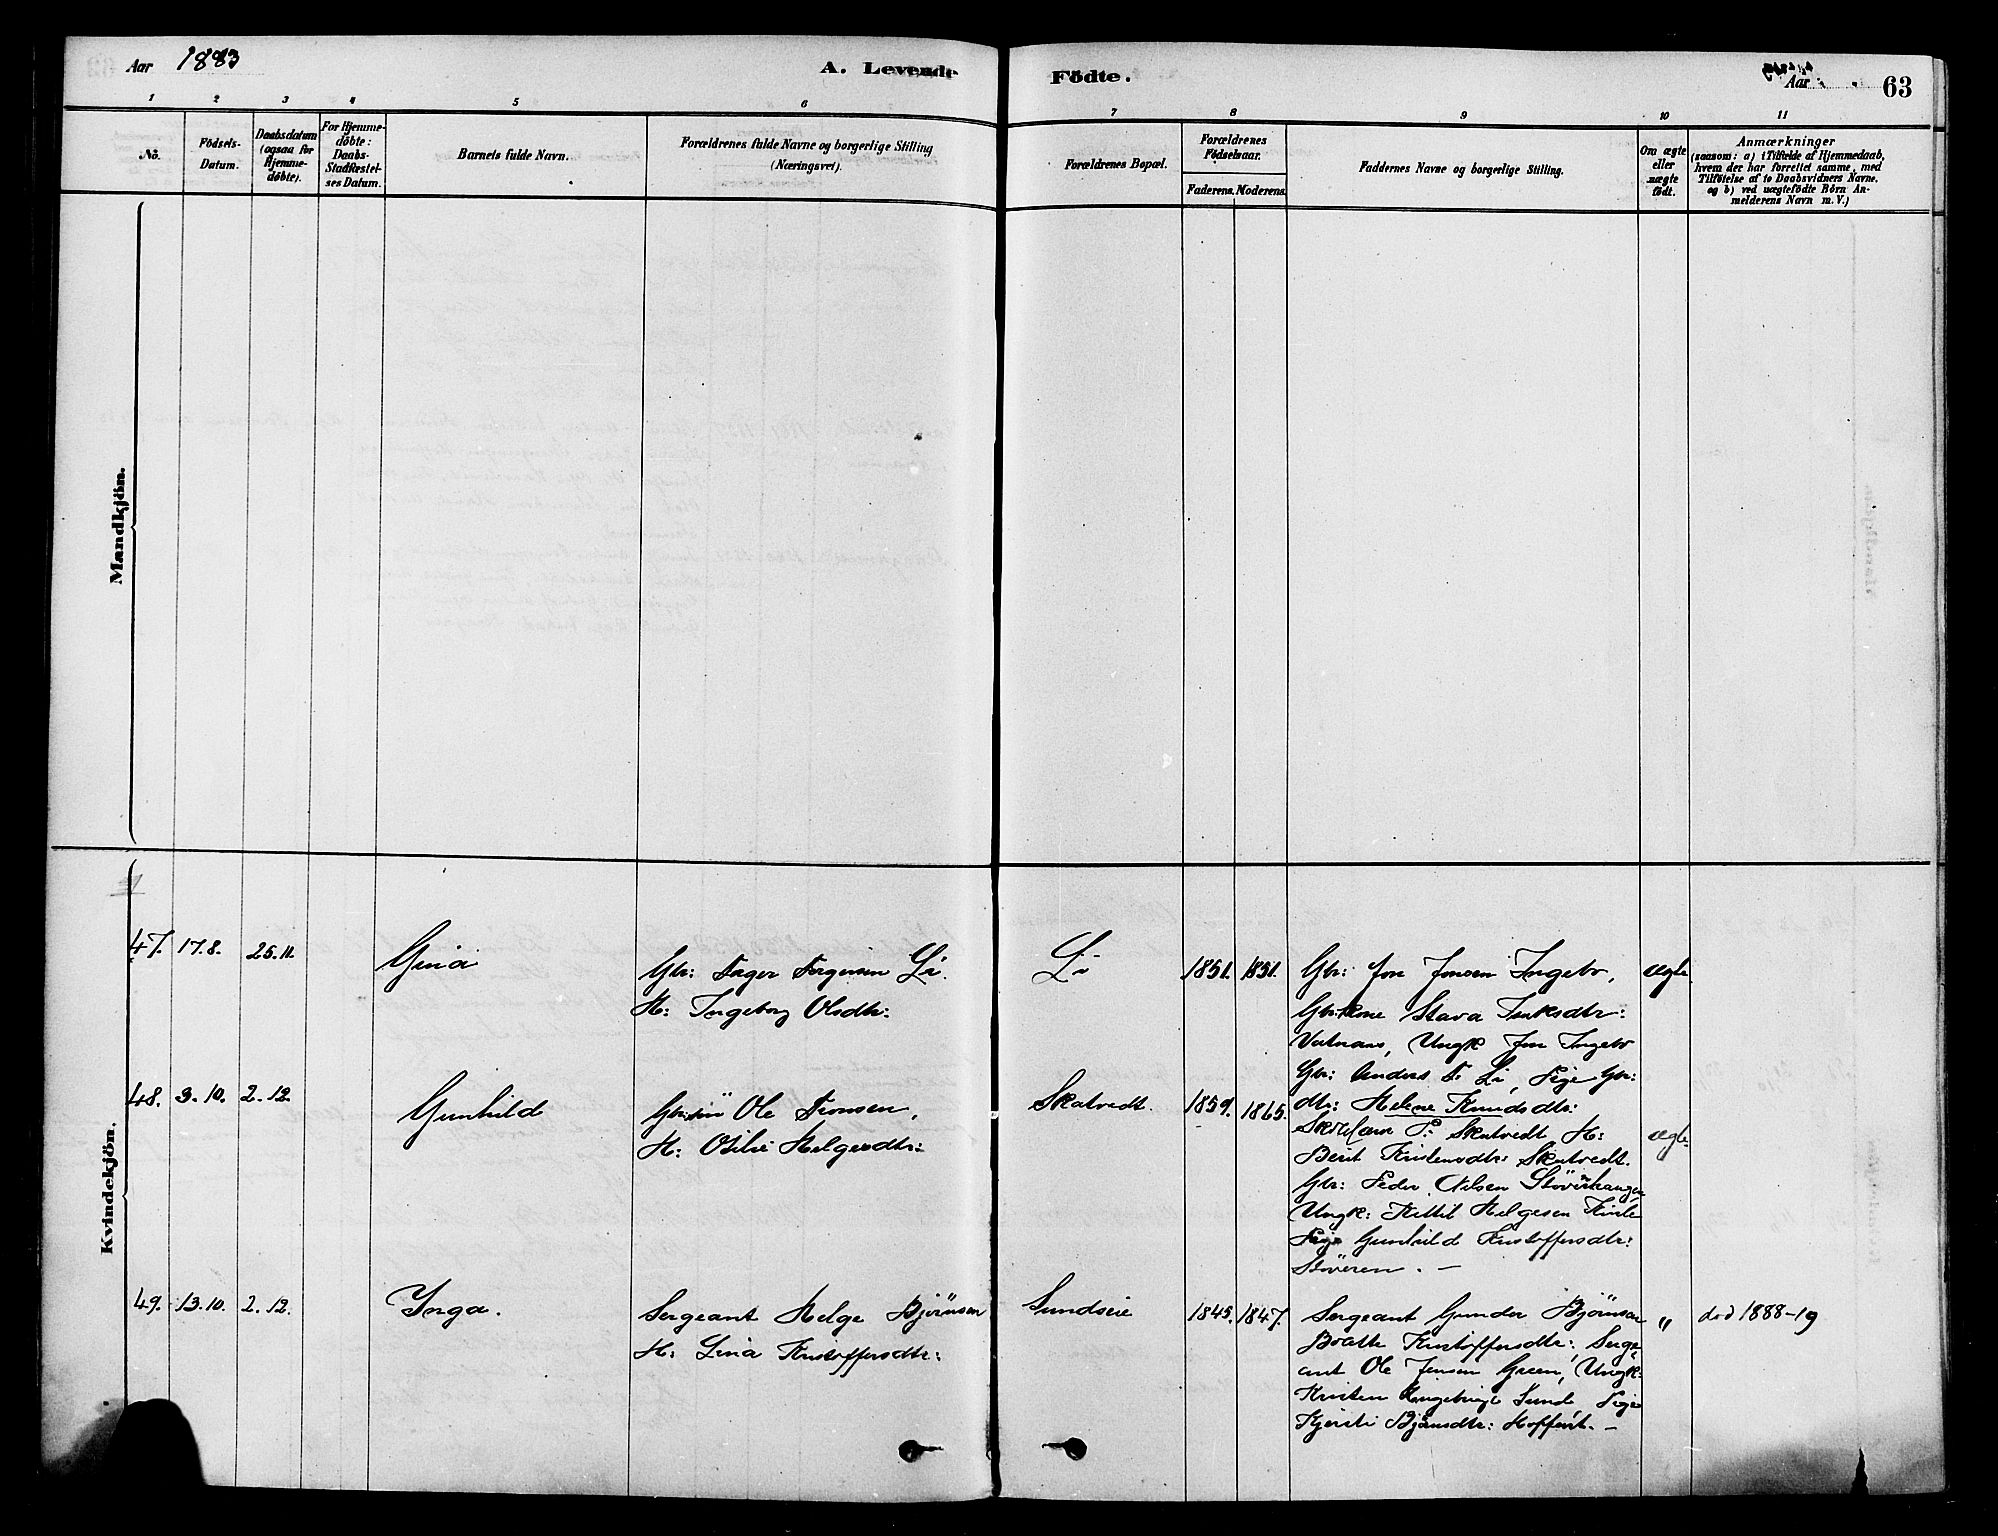 Aar 1883
A. Levende Födte.
Aar
63
1 2 3 4 5 6 7 8 9 10 11
No.
Födsels-
Datum.
Daabsdatum
(ogsaa for
Hjemme-
døbte).
For Hjemme-
døbte:
Daabs-
Stadfæstel-
ses Datum.
Barnets fulde Navn.
Forældrenes fulde Navne og borgerlige Stilling
(Næringsvei).
Forældrenes Bopæl.
Forældrenes
Födselsaar.
Faderens. Moderens.
Faddernes Navne og borgerlige Stilling.
Om ægte
eller
uægte
født.
Anmærkninger
(saasom: a) i Tilfælde af Hjemmedaab,
hvem der har forrettet samme, med
Tilföielse af to Daabsvidners Navne,
og b) ved uægtefödte Börn An-
melderens Navn m. V.)
Mandkjön.
Kvindekjön.
47. 17.8. 25.11 Gina
Gbr: Torger Torgersen Li.
H: Ingeborg Olsdtr:
Li 1851. 1851.
Gbr: Jon Jonsen Ingebo,
Gbr:kone Stava
Vatnaas, Ungk Jon Ingebo
Gbr: Anders T. Li, Pige Gbr:
dtr: Helene Knudsdtr:
ægte.
48. 3.10. 2.12. Gunhild
Ole Tronsen,
H: Otilie Helgesdtr:
Skatvedt. 1859. 1865.
Skatvedt H:
Berit Kristensdtr: Skatvedt.
Gbr: Peder Nilsen
Ungk: Kittil Helgesen
Pige Gunhild Kristoffersdtr:
Støveren. —
ægte.
49. 13.10. 2.12. Inga.
Sergeant Helge Bjørnsen
H: Lina Kristoffersdtr:
Sundseie 1845. 1847.
Sergeant Gunder Bjørnsen
Kristoffersdtr: Serge-
ant Ole Jensen Green, Ungk:
Kristen Sunde, Pige
Kjersti Bjørnsdtr: Hoffart. —
"
død 1888-19